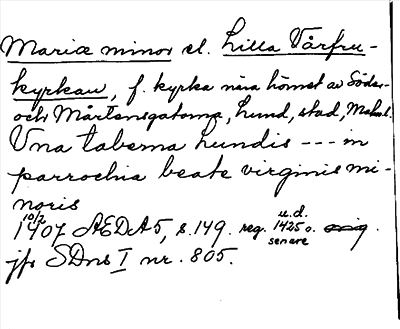 Mariæ minor el. Lilla Vårfru-
kyrkan, f. kyrka nära hörnet av Söder-
och Mårtensgatorna, Lund, stad, Malm. l.
Una taberna Lundis --- in
parrochia beate virginis mi-
noris
10/2 1407 AEDA 5, s. 149. reg. u.d. 1425 o. senare
jfr SDns I nr. 805.